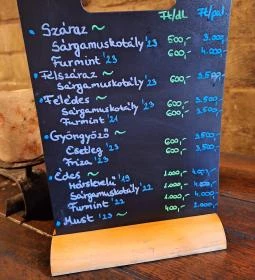 Ft/dl Ft/pal
• Száraz ~
Sárgamuskotály '23 500,- 3.000,-
Furmint '23 600,- 4.000,-
• Félszáraz ~
Sárgamuskotály '23 600,- 3.500,-
• Félédes ~
Sárgamuskotály '23 600,- 3.500,-
Furmint '21 600,- 3.500,-
• Gyöngyöző ~
Csetleg '23 600,- 3.500,-
Friza '23 600,- 3.500,-
• Édes ~
Hárslevelű '19 1.000,-
Sárgamuskotály '22 1.000,-
Furmint '22 1.000,-
• Must '23 ~ 400,- 2.000,-